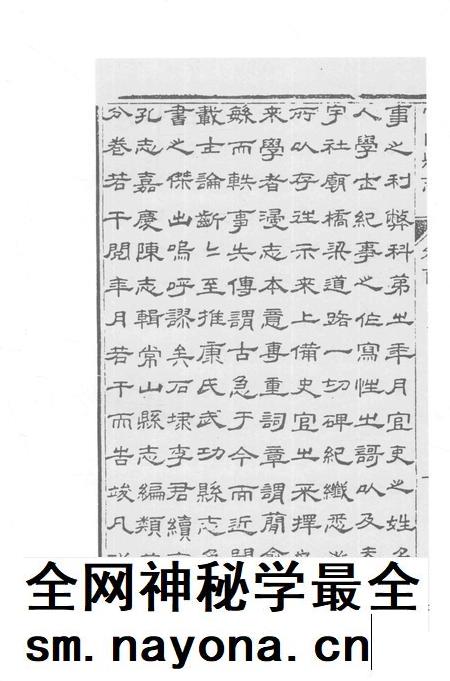 事之利弊科苐㞢年月官吏之姓
人學士紀事之作寫性㞢謌以及
宇社廟橋梁道路一切碑紀纖悉
所以存往示来上備史官㞢采擇
来學者漫志本意專重詞章謂
而軼事失傳謂古急于今而近聞
載士論齗〻至推康氏武功縣志
書之傑出嗚呼謬矣石埭李君續
孔志嘉慶陳志輯常山縣志編類
分卷若干閱年月若干而告竣凡
全网神秘学最全
sm.nayona.cn